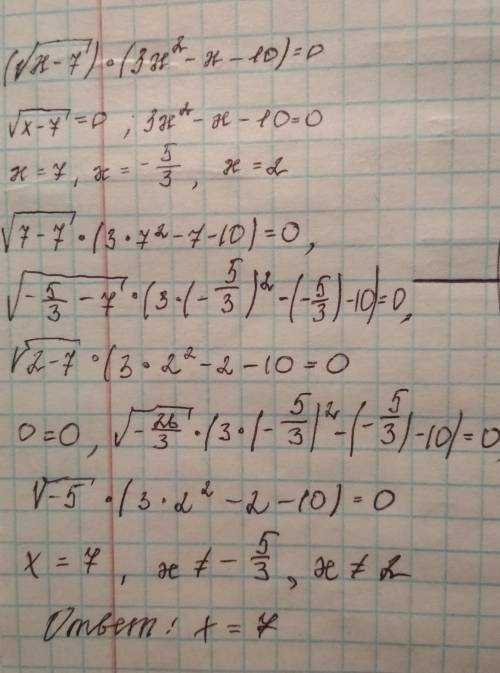 (√(x-7))·(3x²-x-10)=0
√(x-7)=0 ; 3x²-x-10=0
x=7, x=-5/3, x=2
√(7-7)·(3·7²-7-10)=0,
√(-5/3-7)·(3·(-5/3)²-(-5/3)-10)=0,
√(2-7)·(3·2²-2-10=0
0=0, √(-26/3)·(3·(-5/3)²-(-5/3)-10)=0
√(-5)·(3·2²-2-10)=0
x=7, x≠-5/3, x≠2
Ответ: x=7